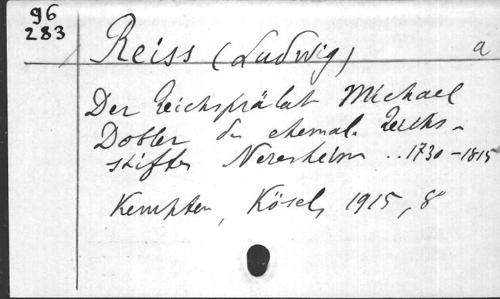 96
283
Reiss (Ludwig) a
Der Reichsprälat Michael
Dobler des ehemal. Reichs-
stiftes Neresheim .. 1730-1815
Kempten, Kösel, 1915, 8°